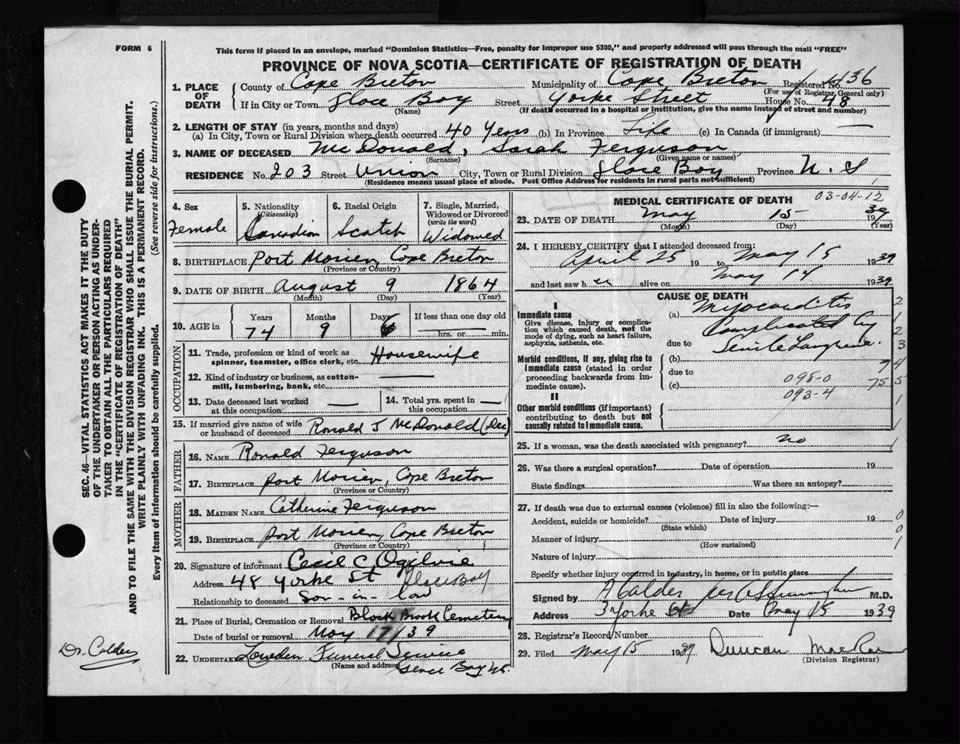 FORM 6
This form if placed in an envelope, marked "Dominion Statistics—Free, penalty for improper use $300," and properly addressed will pass through the mail "FREE"
PROVINCE OF NOVA SCOTIA—CERTIFICATE OF REGISTRATION OF DEATH
1. PLACE OF DEATH County of Cape Breton Municipality of Cape Breton Registered No. 136
(For use of Registrar General only)
If in City or Town Glace Bay Street Yorke Street House No. 48
(Name) (If death occurred in a hospital or institution, give the name instead of street and number)
2. LENGTH OF STAY (in years, months and days)
(a) In City, Town or Rural Division where death occurred 40 Years (b) In Province Life (c) In Canada (if immigrant) —
3. NAME OF DECEASED McDonald, Sarah Ferguson
(Surname) (Given name or names)
RESIDENCE No. 203 Street Union City, Town or Rural Division Glace Bay Province N.S
(Residence means usual place of abode. Post Office Address for residents in rural parts not sufficient)
4. Sex Female
5. Nationality (Citizenship) Canadian
6. Racial Origin Scotch
7. Single, Married, Widowed or Divorced (write the word) Widowed
8. BIRTHPLACE Port Morien, Cape Breton
(Province or Country)
9. DATE OF BIRTH August 9 1864
(Month) (Day) (Year)
10. AGE in Years Months Days If less than one day old
74 9 6 hrs. or min.
OCCUPATION
11. Trade, profession or kind of work as spinner, teamster, office clerk, etc. Housewife
12. Kind of industry or business, as cotton-mill, lumbering, bank, etc. —
13. Date deceased last worked at this occupation —
14. Total yrs. spent in this occupation. —
15. If married give name of wife or husband of deceased Ronald J McDonald (Dec)
FATHER
16. NAME Ronald Ferguson
17. BIRTHPLACE Port Morien, Cape Breton
(Province or Country)
MOTHER
18. MAIDEN NAME Catherine Ferguson
19. BIRTHPLACE Port Morien, Cape Breton
(Province or Country)
20. Signature of informant Cecil C. Ogilvie
Address 48 Yorke St Glace Bay
Relationship to deceased Son-in law
21. Place of Burial, Cremation or Removal Black Brook Cemetery
Date of burial or removal May 17/39
22. UNDERTAKER Funeral Service
(Name and address) Glace Bay NS.
MEDICAL CERTIFICATE OF DEATH 03-04-12
23. DATE OF DEATH May 15 1939
(Month) (Day) (Year)
24. I HEREBY CERTIFY that I attended deceased from:
April 25 19 to May 15 1939
and last saw her alive on May 14 1939
CAUSE OF DEATH
I
Immediate cause (a) Myocarditis
Give disease, injury or complication which caused death, not the mode of dying, such as heart failure, asphyxia, asthenia, etc.
Complicated by
due to Senile Gangrene
Morbid conditions, if any, giving rise to immediate cause (stated in order proceeding backwards from immediate cause).
(b)
due to
(c) 098-0
093-4
II
Other morbid conditions (if important) contributing to death but not causally related to immediate cause.
25. If a woman, was the death associated with pregnancy? no
26. Was there a surgical operation? Date of operation 19
State findings Was there an autopsy?
27. If death was due to external causes (violence) fill in also the following:—
Accident, suicide or homicide? Date of injury 19
(State which)
Manner of injury
(How sustained)
Nature of injury
Specify whether injury occurred in industry, in home, or in public place
Signed by A Calder M.D.
Address 3 Yorke St Date May 15 1939
28. Registrar's Record Number
29. Filed May 15 1939 Duncan MacRae
(Division Registrar)
Dr. Calder
SEC. 46—VITAL STATISTICS ACT MAKES IT THE DUTY
OF THE UNDERTAKER OR PERSON ACTING AS UNDER-
TAKER TO OBTAIN ALL THE PARTICULARS REQUIRED
IN THE "CERTIFICATE OF REGISTRATION OF DEATH"
AND TO FILE THE SAME WITH THE DIVISION REGISTRAR WHO SHALL ISSUE THE BURIAL PERMIT.
WRITE PLAINLY WITH UNFADING INK. THIS IS A PERMANENT RECORD.
Every item of information should be carefully supplied. (See reverse side for instructions.)